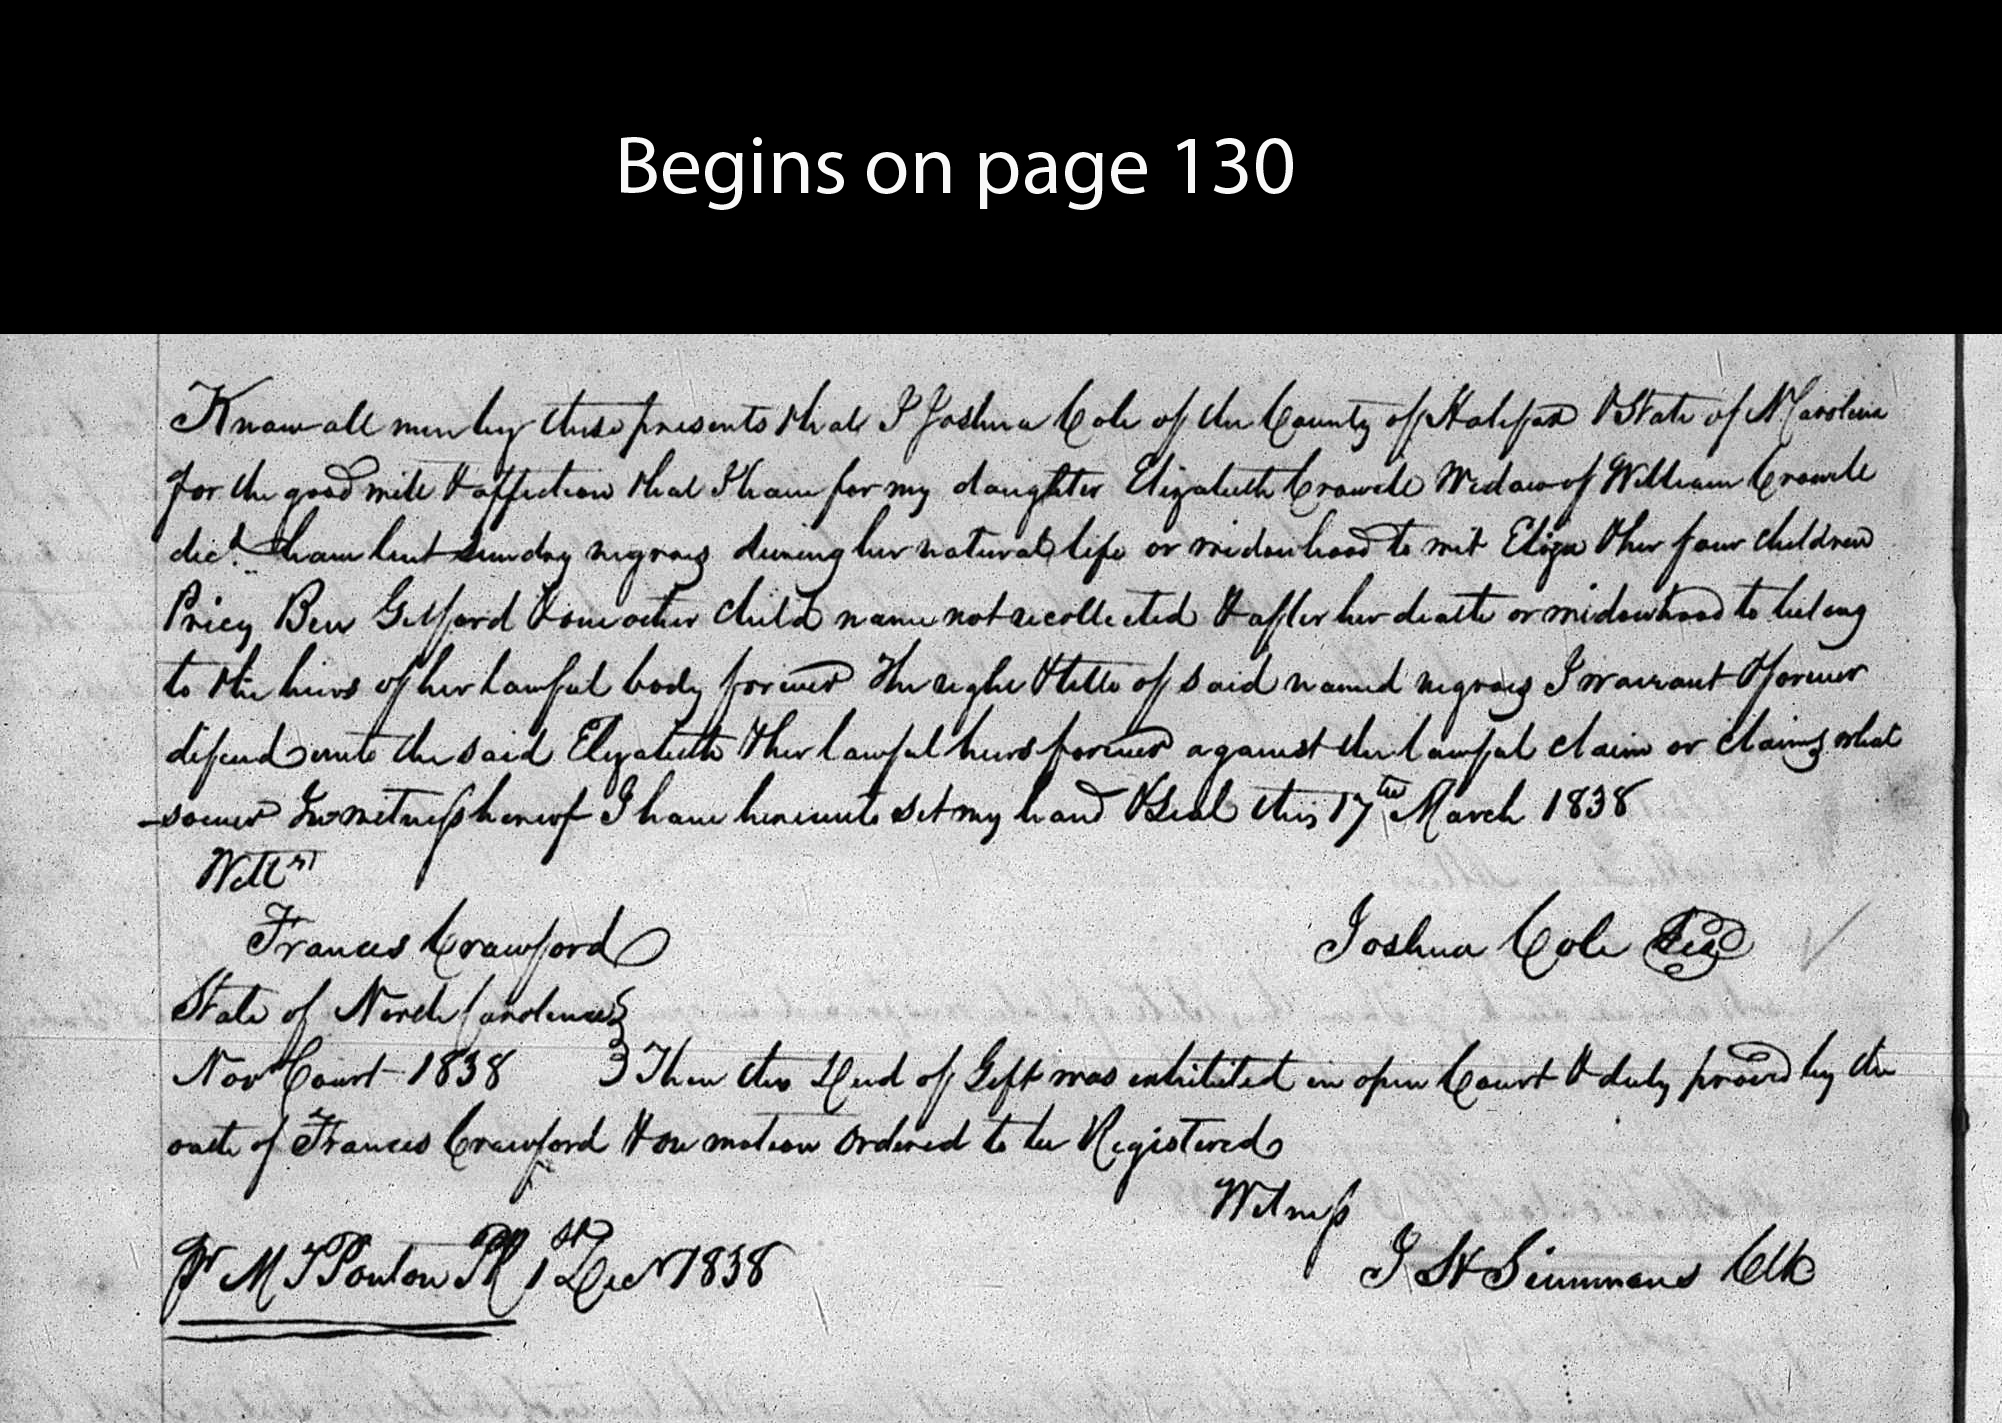 Begins on page 130
Know all men by these presents that I Joshua Cole of the County of Halifax & State of N Carolina
for the good will & affection that I have for my daughter Elizabeth Crowell Widow of William Crowell
decd. have lent sundry negroes during her natural life or widowhood to wit Eliza & her four children
Pricy Ben Gilford & one other child name not recollected & after her death or widowhood to belong
to the heirs of her lawful body forever The right & title of said named negroes I warrant & forever
defend unto the said Elizabeth & her lawful heirs forever against the lawful claim or claims what
-soever In witness hereof I have hereunto set my hand & Seal this 17th March 1838
Frances Crawford Joshua Cole Seal
State of North Carolina
Nov Court 1838 Then this Deed of Gift was exhibited in open Court & duly proved by the
oath of Frances Crawford & on motion ordered to be Registered
Witness
Pr M T Ponton PR 1st Decr 1838 J H Simmons Clk